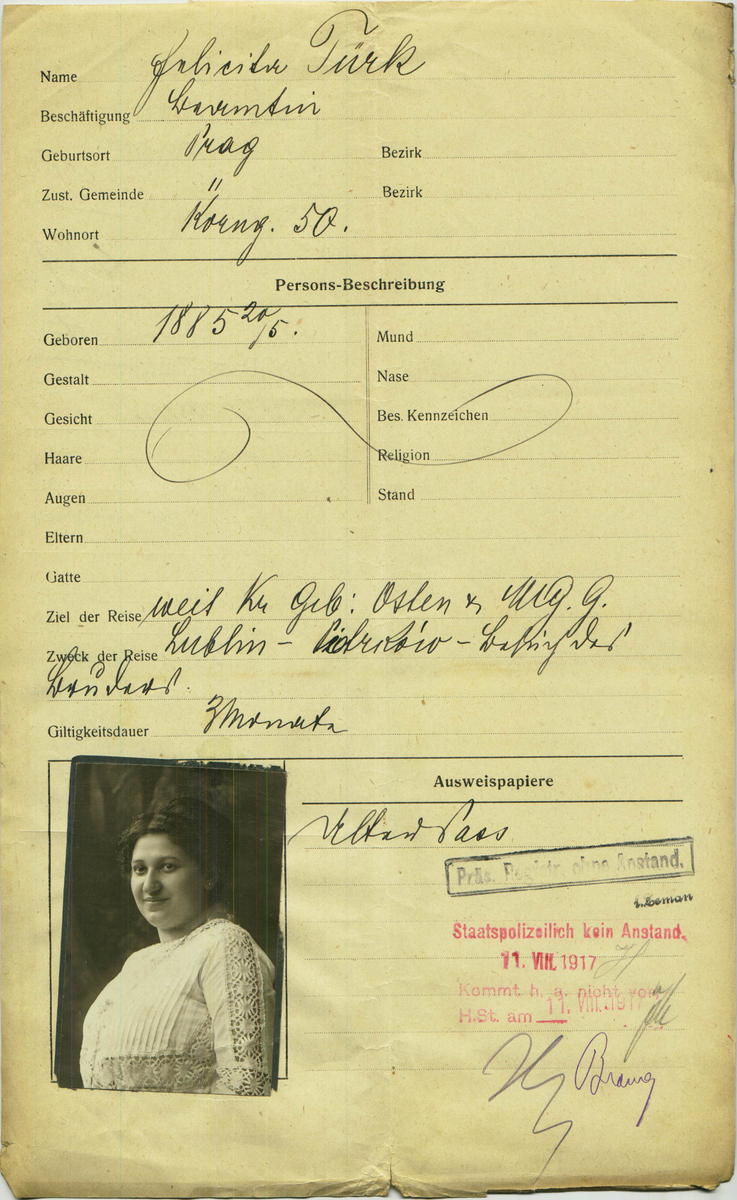 Name Felicitas Türk
Beschäftigung Beamtin
Geburtsort Prag Bezirk
Zust. Gemeinde " Bezirk
Wohnort Korng. 50.
Persons-Beschreibung
Geboren 1885 20/5. Mund
Gestalt Nase
Gesicht Bes. Kennzeichen
Haare Religion
Augen Stand
Eltern
Gatte
Ziel der Reise weit Kr Geb: Osten & MG. G.
Zweck der Reise Lublin – Piotrków – Besuch des
Bruders.
Giltigkeitsdauer 3 Monate
Ausweispapiere
Alter Pass
Präs. Registr. ohne Anstand.
Staatspolizeilich kein Anstand.
11. VIII. 1917
Kommt h. a. nicht vor
H.St. am 11. VIII. 1917